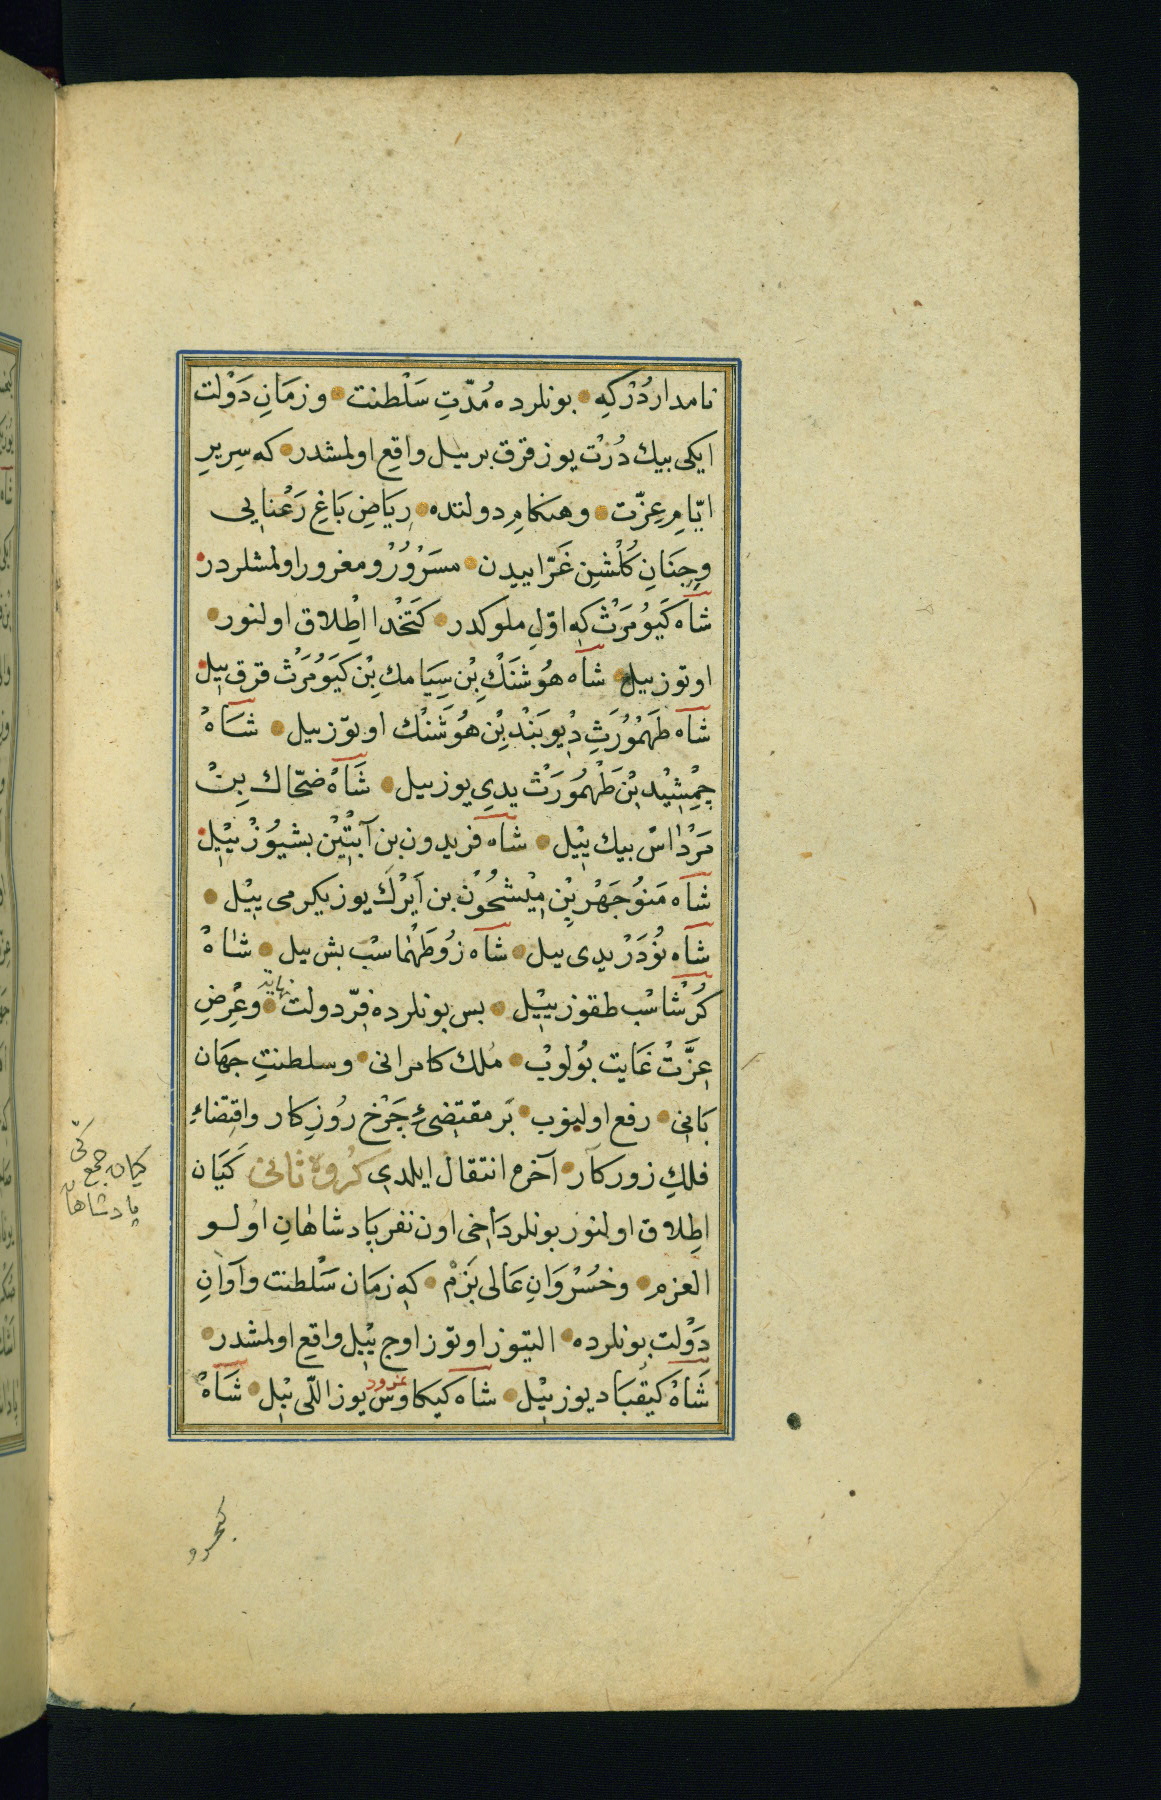 نامداردُرْكِه بونلرده مُدّتِ سَلْطنت وزمَانِ دَوْلت
ايكى بيك دُرْت يوز قرق بر ييل واقع اولمشدر كه سِريرِ
ايّامِ عِزّت وهنكامِ دولتده رِيَاضِ بَاغِ رَعْنايى
وجِنَانِ كُلْشِنِ غَرّاييدن مسَرْوُرْ ومغرور اولمشلردر
شاه كَيُومَرْثْ كه اوّلِ ملوكدر كَتَخْدا اِطِلاق اولنور
اوتوز ييل شاه هوُشَنْكِ بْنِ سِيَامك بْنِ كَيَوُمَرْث قرق ييل
شاه طَهْموُرَثِ ديوبَنْد بْنِ هوُشَنْك اوتوّز ييل شَاهْ
جِمْشِيْد بْنِ طَهْموُرَثْ يدى يوز ييل شَاهْ ضحّاك بِنْ
مَرْدَاسْ بيك ييْل شاه فريدون بن آبتْيْن بشيوُزْ ييْل
شاه مَنوُجَهْر بْنِ مِيْشخُوْن بن اَيْرَك يوز يكرمى ييْل
شاه نوُدَرْ يدى ييل شاه زوُطَهْمَاسْب بش ييل شاهْ
كُرْشَاسْب طقوز ييْل بس بونلرده فرّ دولت نهايت وعِرْضِ
عِزَّتْ غَايت بوُلوبْ مُلك كامرانى وسلطنتِ جهَان
بَانى رفع اولينوب بَر مقتضىءِ جَرْخ روُزِكار واقتِضاءِ
فلكِ زوركار آخره انتقال ايلدى كروه ثانى كَيَان
اطِلاق اولنور بونلر دَاخى اون نفر پادشاهَانِ اوُلو
العزم وخُسْرَوَانِ عَالى بَزْم كه زمَان سَلْطنت وآوَانِ
دَوْلت بونلرده التيوز اوتوّز اوج ييْل واقع اولمشدر
شَاهْ كيقُبَاد يوز ييْل شاه كيكاوس نمرود يوز اللّى ييْل شَاهْ
كيان جمع كى
پادشاهان
كيخسرو